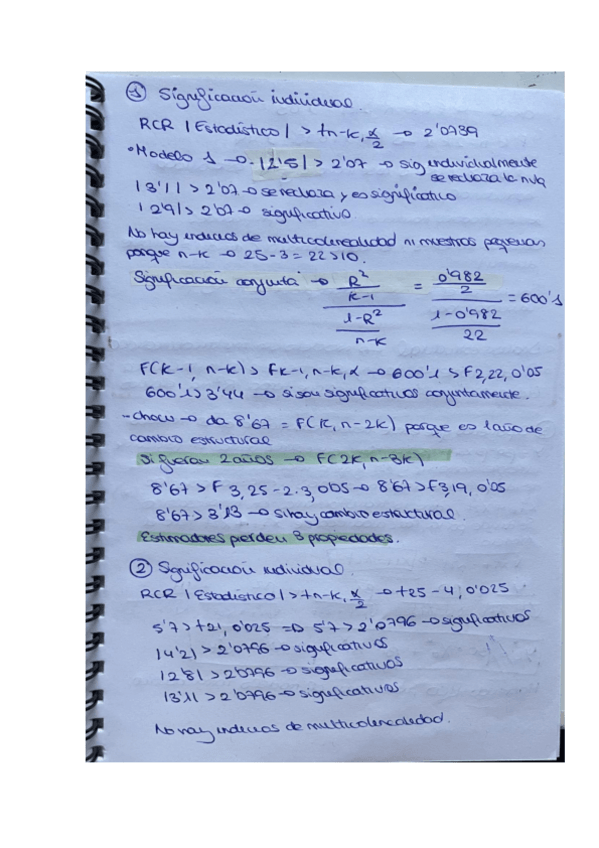 ① Significación individual.
RCR |Estadístico| > tn-k, α/2 → 2'0739
• Modelo 1 → |2'5| > 2'07 → sig individualmente
se rechaza la nula
|3'1| > 2'07 → se rechaza y es significativo
|2'9| > 2'07 → significativo
No hay indicios de multicolinealidad ni muestras pequeñas
porque n-k → 25-3 = 22 > 10.
Significación conjunta → R²/k-1 / 1-R²/n-k = 0'982/2 / 1-0'982/22 = 600'1
F(k-1, n-k) > Fk-1, n-k, α → 600'1 > F2,22, 0'05
600'1 > 3'44 → si son significativos conjuntamente.
- Chow → da 8'67 = F(k, n-2k) porque es 1 año de
cambio estructural
Si fueran 2 años → F(2k, n-3k)
8'67 > F 3, 25-2·3, 0'05 → 8'67 > F3,19, 0'05
8'67 > 3'13 → si hay cambio estructural.
Estimadores pierden 3 propiedades.
② Significación individual.
RCR |Estadístico| > tn-k, α/2 → t25-4, 0'025
5'7 > t21, 0'025 => 5'7 > 2'0796 → significativos
|4'2| > 2'0796 → significativos
|2'8| > 2'0796 → significativos
|3'1| > 2'0796 → significativos
No hay indicios de multicolinealidad.